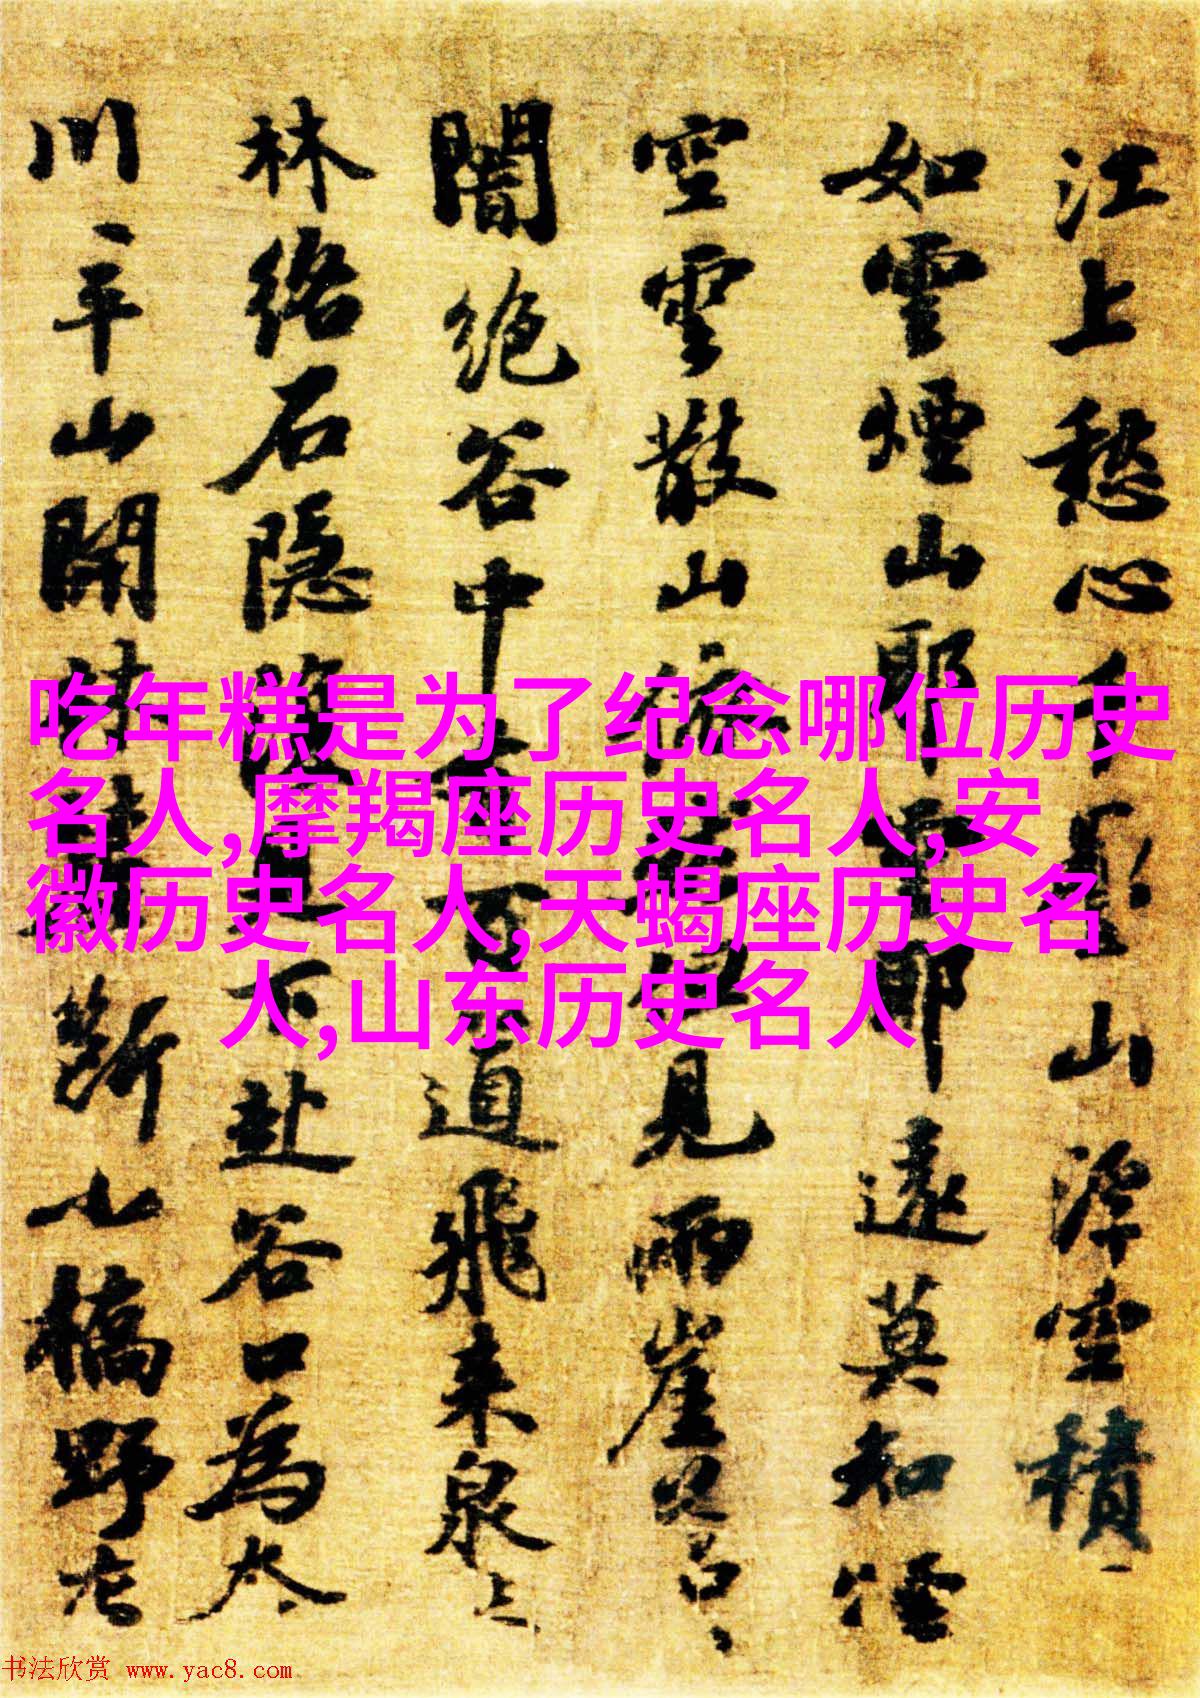 江上愁心千疊山浮空積
如雲煙山耶雲耶遠莫知煙
空雲散山依見兩崖
闇絕谷中百道飛來泉
林絡石隱下赴谷口為
川平山開林斷小橋野
吃年糕是为了纪念哪位历史
名人,摩羯座历史名人,安
徽历史名人,天蝎座历史名
人,山东历史名人
书法欣赏 www.yac8.com